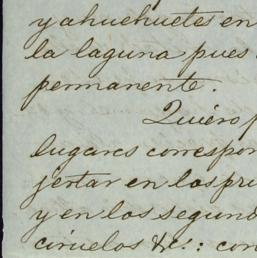 y ahuehuete en
la laguna pues
permanente.
Quiero p
lugares correspon
jertar en los pri
y en los segund
ciruelos &c.: con